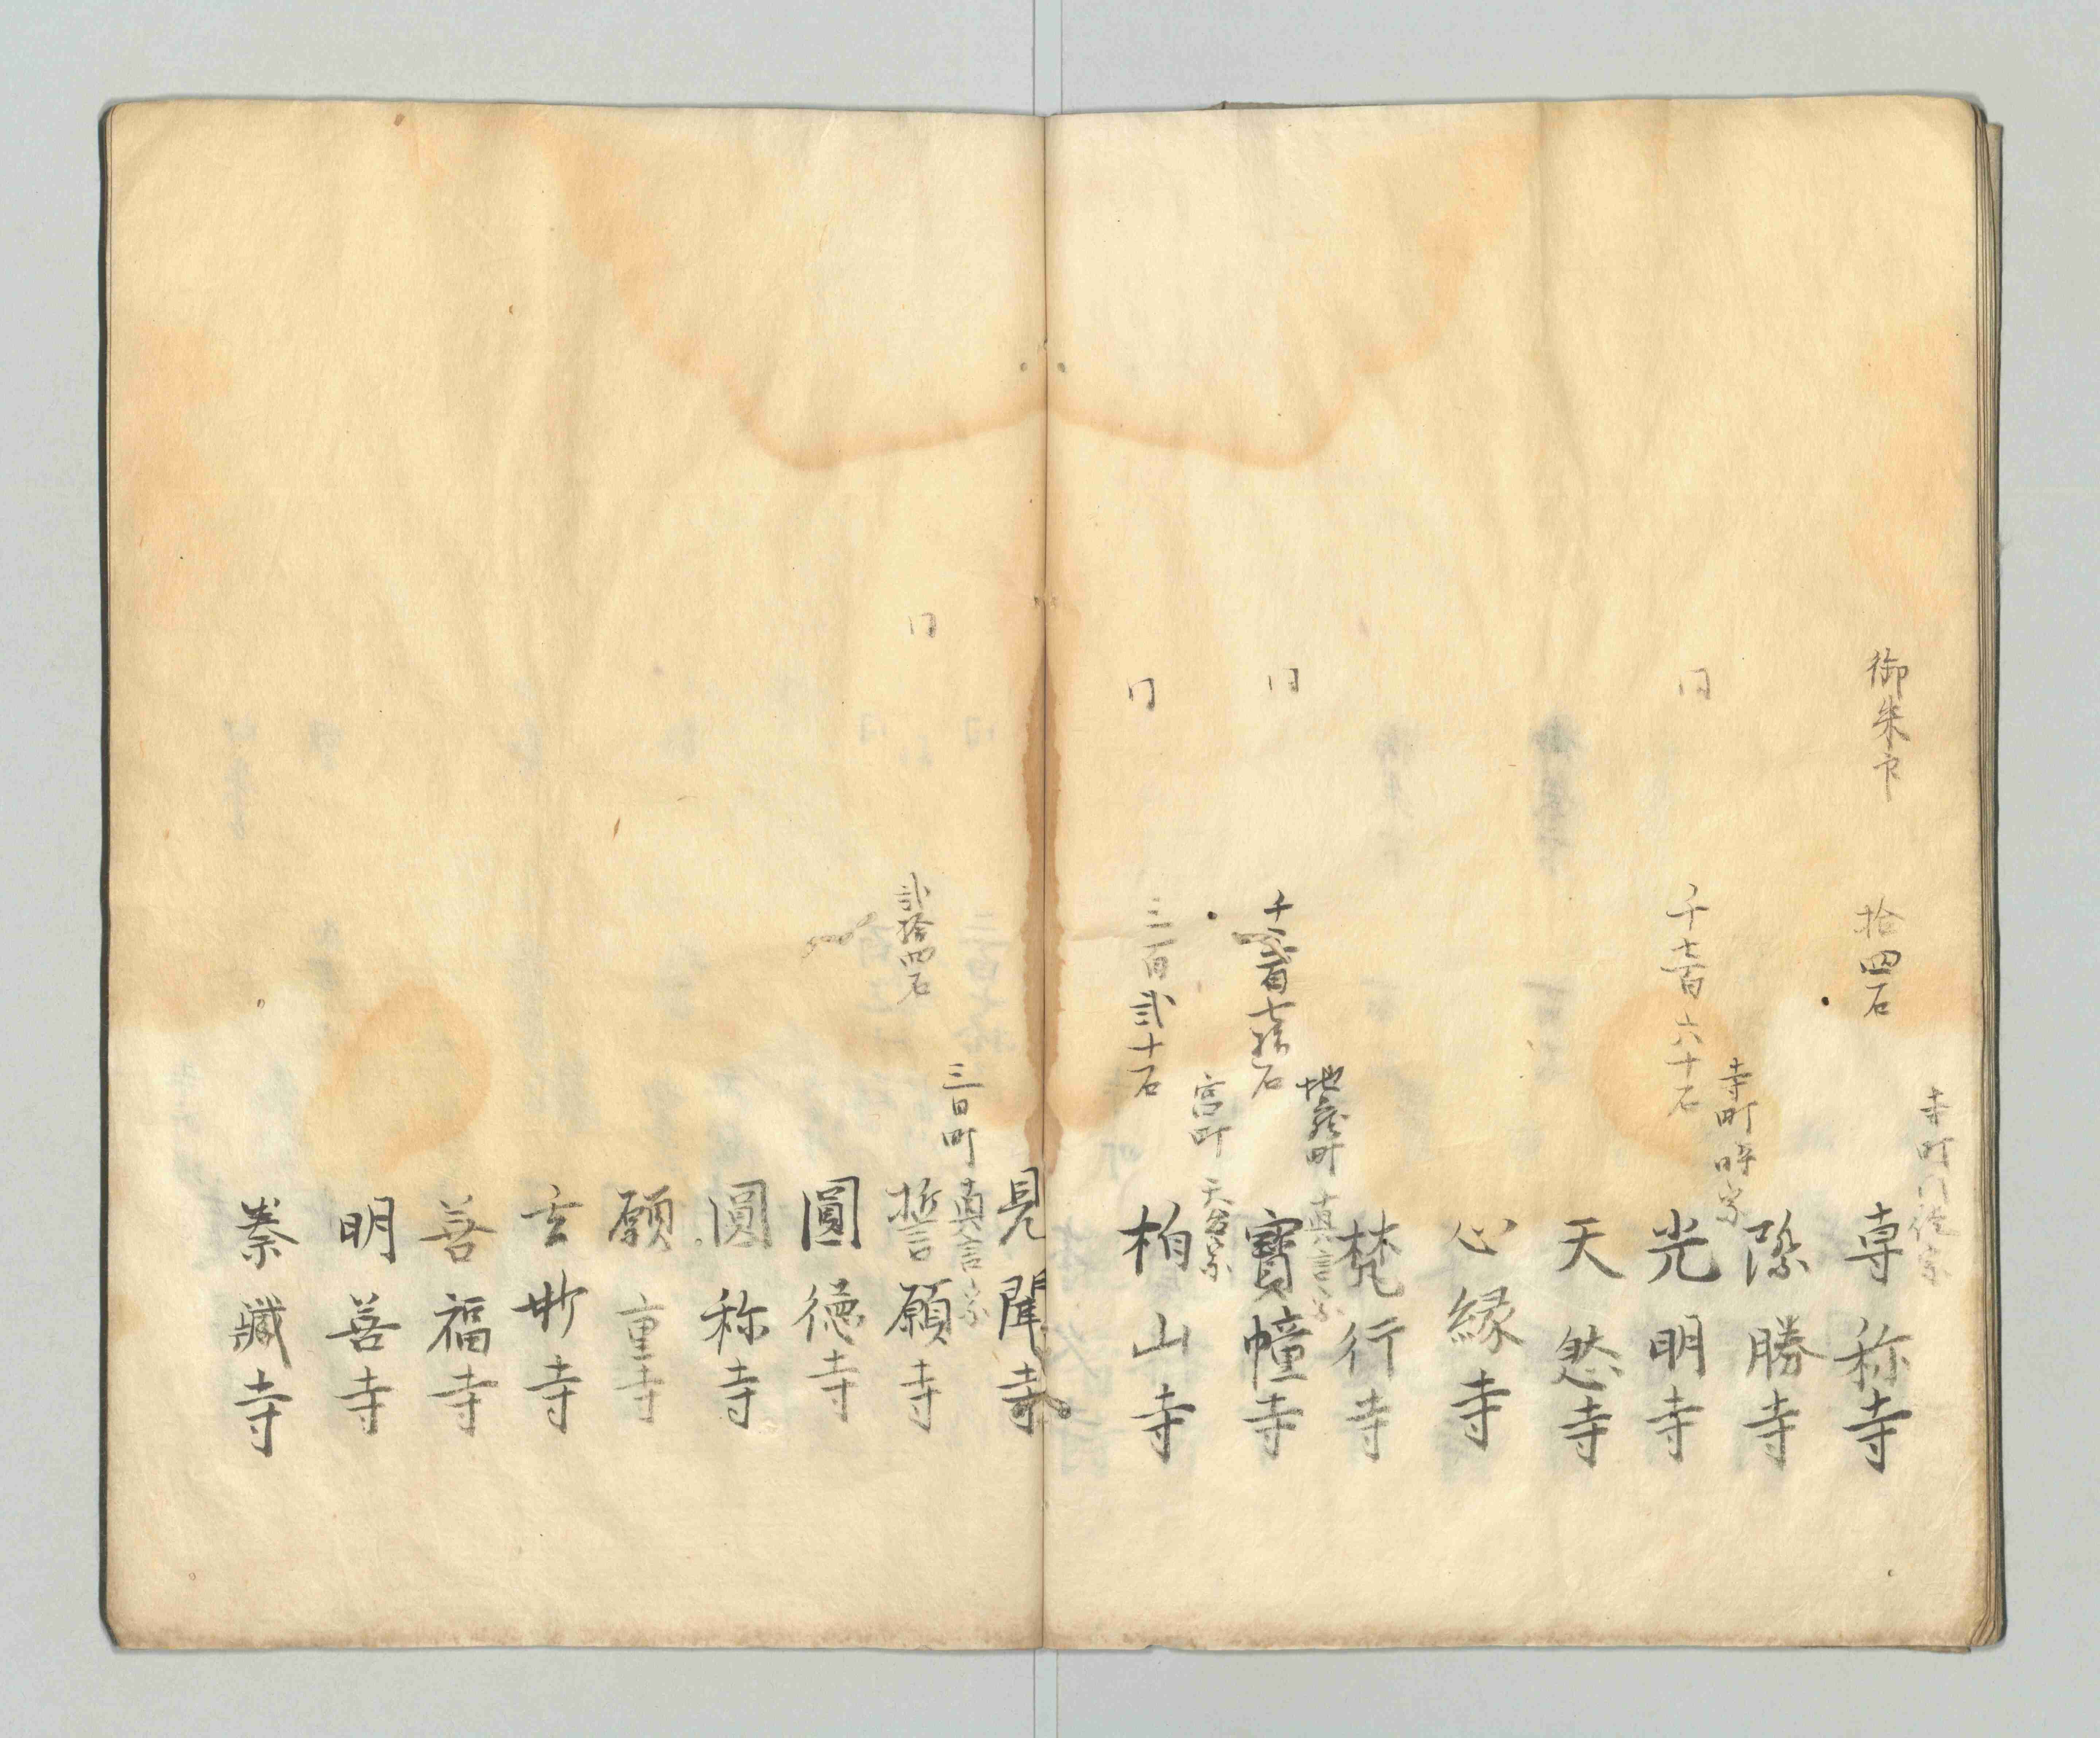 寺町 門徒宗
御朱印 拾四石 専称寺
勝寺
寺町 時宗
同 千七百六十石 光明寺
天然寺
心縁寺
梵行寺
地蔵町 真言宗
同 千三百七拾石 寳幢寺
宮町 天台宗
同 三百弐十石 柏山寺
見聞寺
三日町 真言宗
同 弐拾四石 誓願寺
圓徳寺
圓称寺
願重寺
玄妙寺
善福寺
明善寺
寺